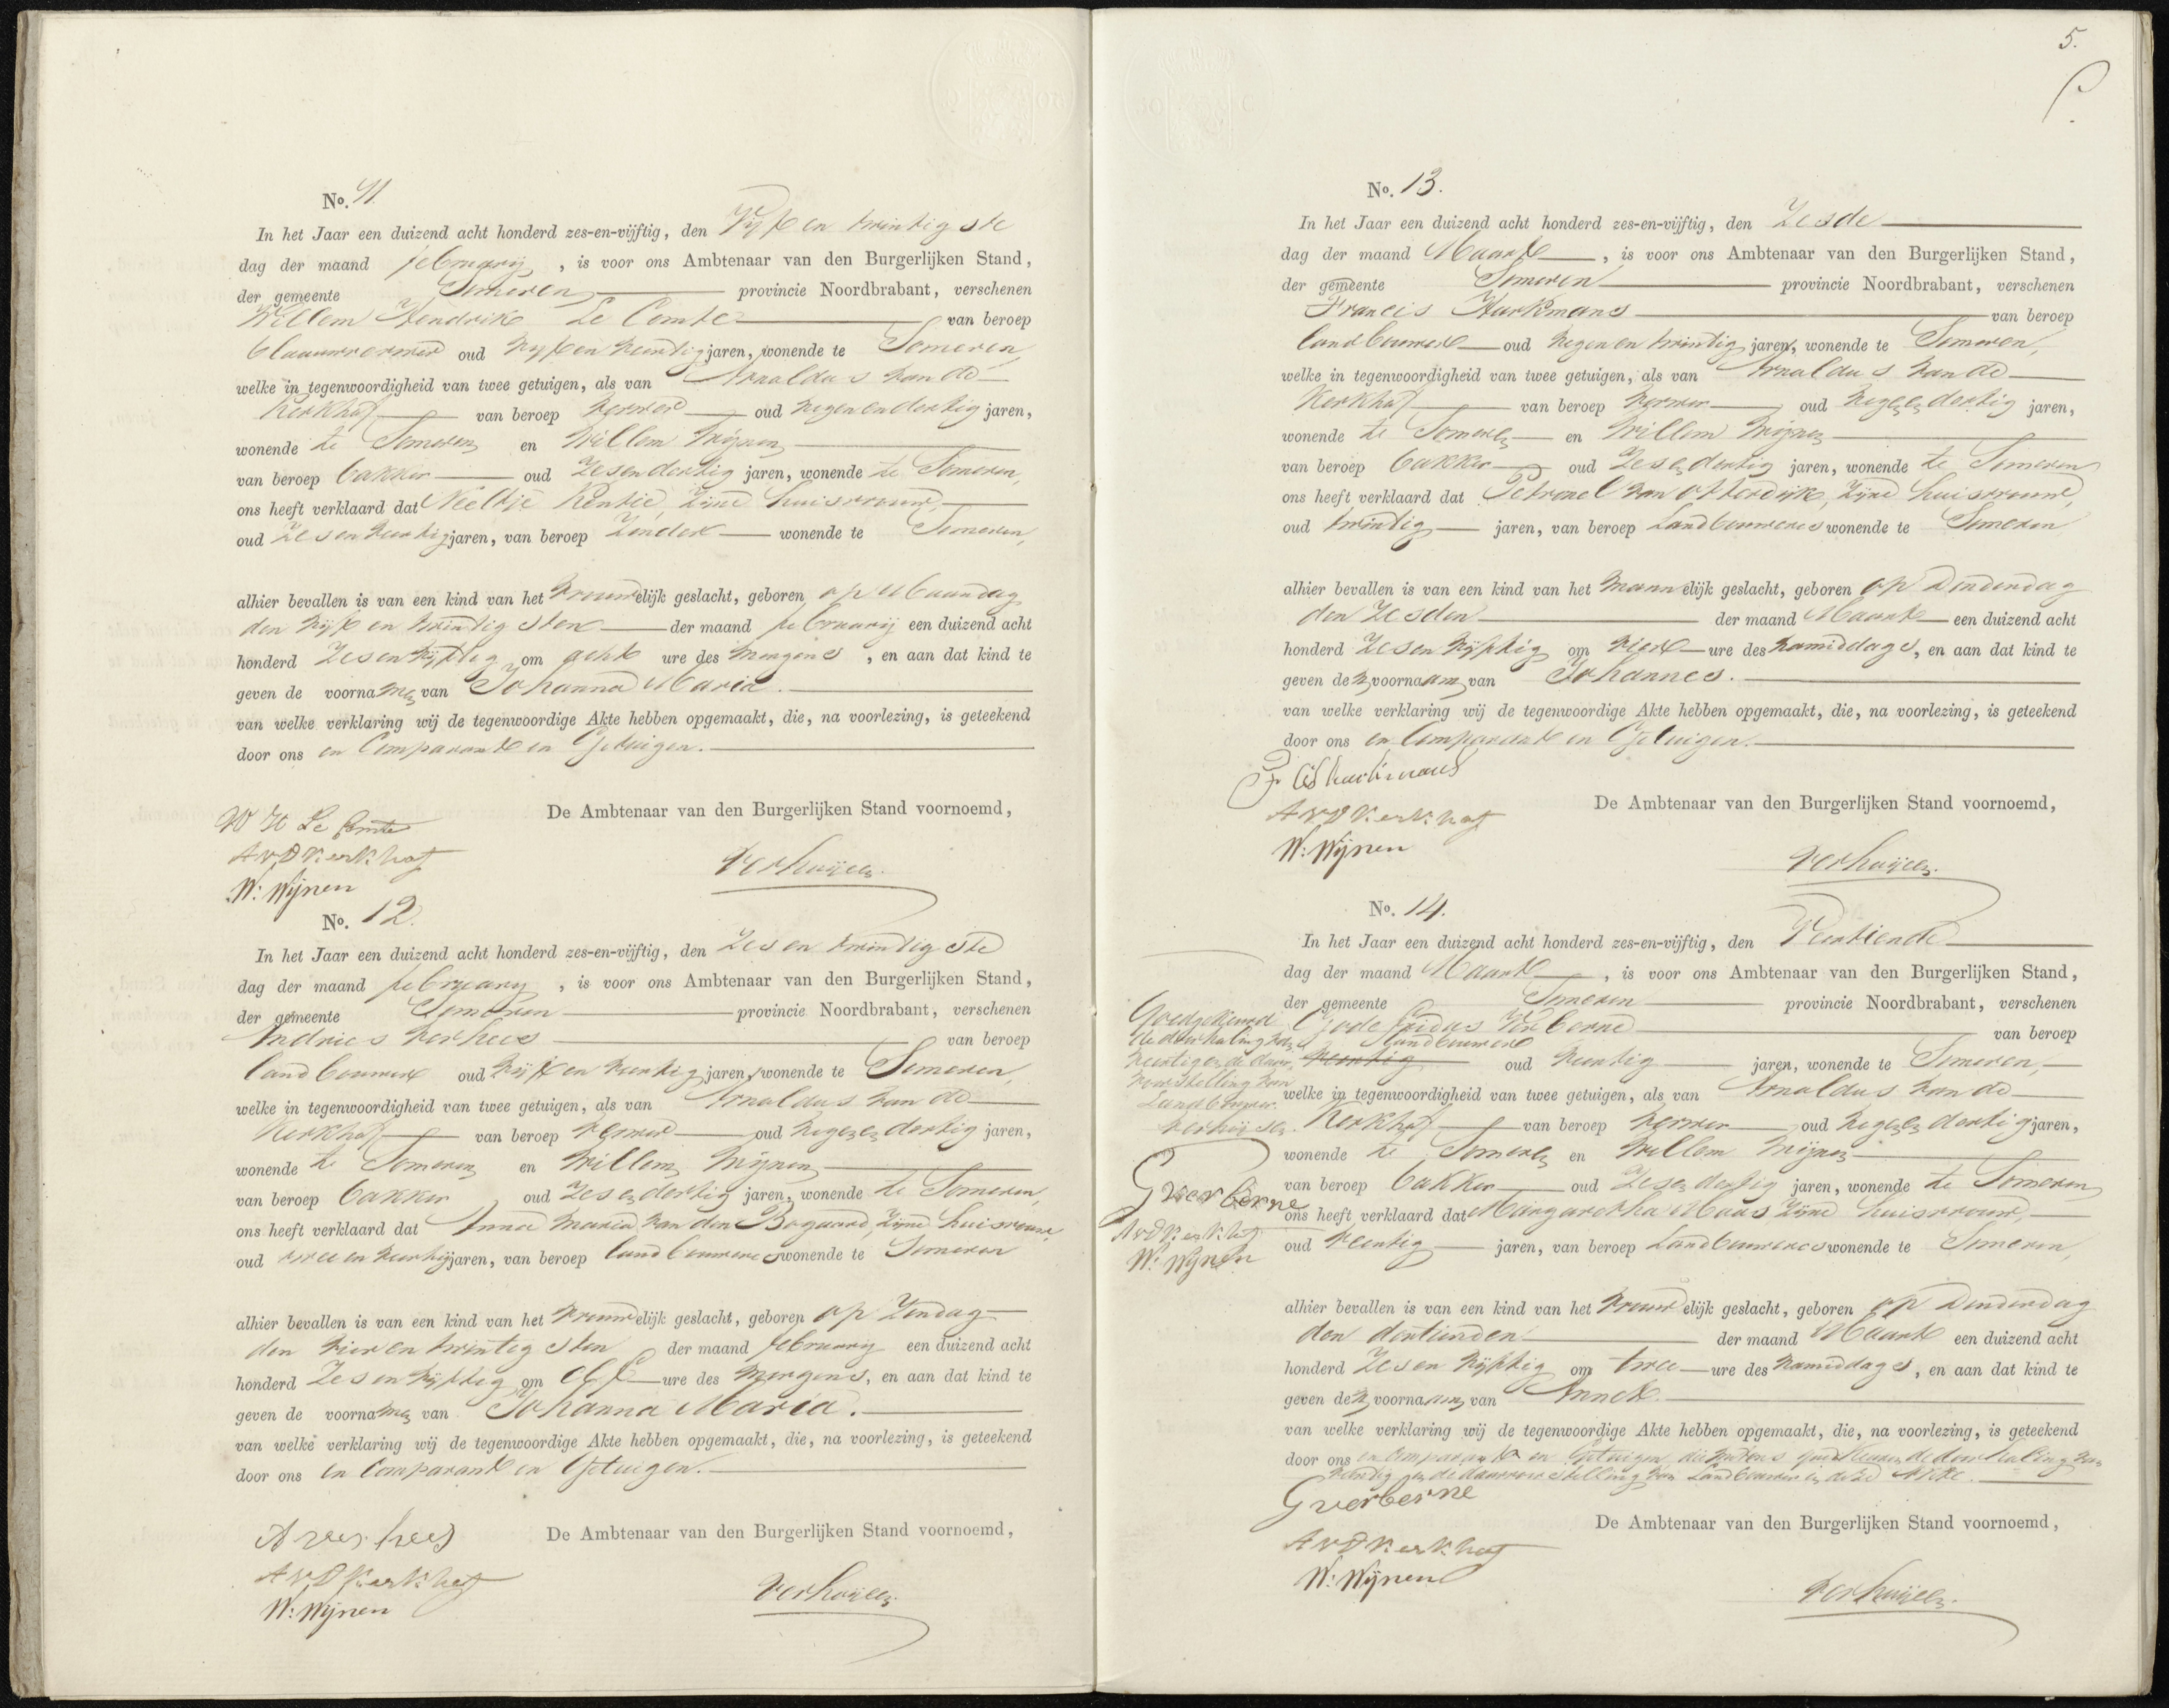 No. 11.
In het Jaar een duizend acht honderd zes-en-vijftig, den Vijf en twintigste
dag der maand februarij, is voor ons Ambtenaar van den Burgerlijken Stand,
der gemeente Someren provincie Noordbrabant, verschenen
Willem Hendrik Le Comte van beroep
blaauwverwer oud vijfenveertig jaren, wonende te Someren,
welke in tegenwoordigheid van twee getuigen, als van Arnoldus van de
Kerkhof van beroep verwer oud negenendertig jaren,
wonende te Someren en Willem Wijnen
van beroep bakker oud zesendertig jaren, wonende te Someren,
ons heeft verklaard dat Neeltje Rentie, zijne huisvrouw,
oud zesenveertig jaren, van beroep zonder wonende te Someren,
alhier bevallen is van een kind van het vrouwelijk geslacht, geboren op Maandag
den vijf en twintigsten der maand februarij een duizend acht
honderd zesenvijftig om acht ure des morgens, en aan dat kind te
geven de voornamen van Johanna Maria.
van welke verklaring wij de tegenwoordige Akte hebben opgemaakt, die, na voorlezing, is geteekend
door ons en Comparant en Getuigen.
De Ambtenaar van den Burgerlijken Stand voornoemd,
W H Le Comte
A v D Kerkhof
W: Wijnen
Verhuijsen
No. 12.
In het Jaar een duizend acht honderd zes-en-vijftig, den zes en twintigste
dag der maand februarij, is voor ons Ambtenaar van den Burgerlijken Stand,
der gemeente Someren provincie Noordbrabant, verschenen
Andries Verhees van beroep
landbouwer oud vijf en veertig jaren, wonende te Someren,
welke in tegenwoordigheid van twee getuigen, als van Arnoldus van de
Kerkhof van beroep verwer oud negenendertig jaren,
wonende te Someren en Willem Wijnen
van beroep bakker oud zesendertig jaren, wonende te Someren,
ons heeft verklaard dat Anna Maria van den Bogaard, zijne huisvrouw,
oud twee en veertig jaren, van beroep landbouweres wonende te Someren
alhier bevallen is van een kind van het vrouwelijk geslacht, geboren op Zondag
den vier en twintigsten der maand februarij een duizend acht
honderd zesenvijftig om elf ure des morgens, en aan dat kind te
geven de voornamen van Johanna Maria.
van welke verklaring wij de tegenwoordige Akte hebben opgemaakt, die, na voorlezing, is geteekend
door ons en Comparant en Getuigen.
De Ambtenaar van den Burgerlijken Stand voornoemd,
A verhees
A v D Kerkhof
W: Wijnen
Verhuijsen
5.
No. 13.
In het Jaar een duizend acht honderd zes-en-vijftig, den Zesde
dag der maand Maart, is voor ons Ambtenaar van den Burgerlijken Stand,
der gemeente Someren provincie Noordbrabant, verschenen
Francis Hurkmans van beroep
landbouwer oud negen en twintig jaren, wonende te Someren,
welke in tegenwoordigheid van twee getuigen, als van Arnoldus van de
Kerkhof van beroep verwer oud negenendertig jaren,
wonende te Someren en Willem Wijnen
van beroep bakker oud zesendertig jaren, wonende te Someren
ons heeft verklaard dat Petronel van Otterdijk, zijne huisvrouw,
oud twintig jaren, van beroep Landbouweres wonende te Someren
alhier bevallen is van een kind van het mannelijk geslacht, geboren op Donderdag
den zesden der maand Maart een duizend acht
honderd zesenvijftig om vier ure des namiddags, en aan dat kind te
geven den voornaam van Johannes.
van welke verklaring wij de tegenwoordige Akte hebben opgemaakt, die, na voorlezing, is geteekend
door ons en Comparant en Getuigen.
De Ambtenaar van den Burgerlijken Stand voornoemd,
A v D Kerkhof
W: Wijnen
Verhuijsen
No. 14.
In het Jaar een duizend acht honderd zes-en-vijftig, den Veertiende
dag der maand Maart, is voor ons Ambtenaar van den Burgerlijken Stand,
der gemeente Someren provincie Noordbrabant, verschenen
Godefridus Verberne van beroep
Landbouwer
veertig oud veertig jaren, wonende te Someren,
welke in tegenwoordigheid van twee getuigen, als van Arnoldus van de
Kerkhof van beroep verwer oud negenendertig jaren,
wonende te Someren en Willem Wijnen
van beroep bakker oud zesendertig jaren, wonende te Someren
ons heeft verklaard dat Margaretha Maas zijne huisvrouw,
oud veertig jaren, van beroep Landbouweres wonende te Someren,
alhier bevallen is van een kind van het vrouwelijk geslacht, geboren op Donderdag
den dertienden der maand Maart een duizend acht
honderd zesenvijftig om twee ure des namiddags, en aan dat kind te
geven den voornaam van Annek.
van welke verklaring wij de tegenwoordige Akte hebben opgemaakt, die, na voorlezing, is geteekend
door ons en Comparant en Getuigen, die tevens goedkeuren de doorhaling van
veertig en de daarvoorstelling van Landbouwer in deze Akte.
De Ambtenaar van den Burgerlijken Stand voornoemd,
G verberne
A v D Kerkhof
W: Wijnen
Verhuijsen
Goedgekeurd
de doorhaling van
veertig en de daar
voorstelling van
Landbouwer.
Verhuijsen.
G verberne
A v D Kerkhof
W: Wijnen